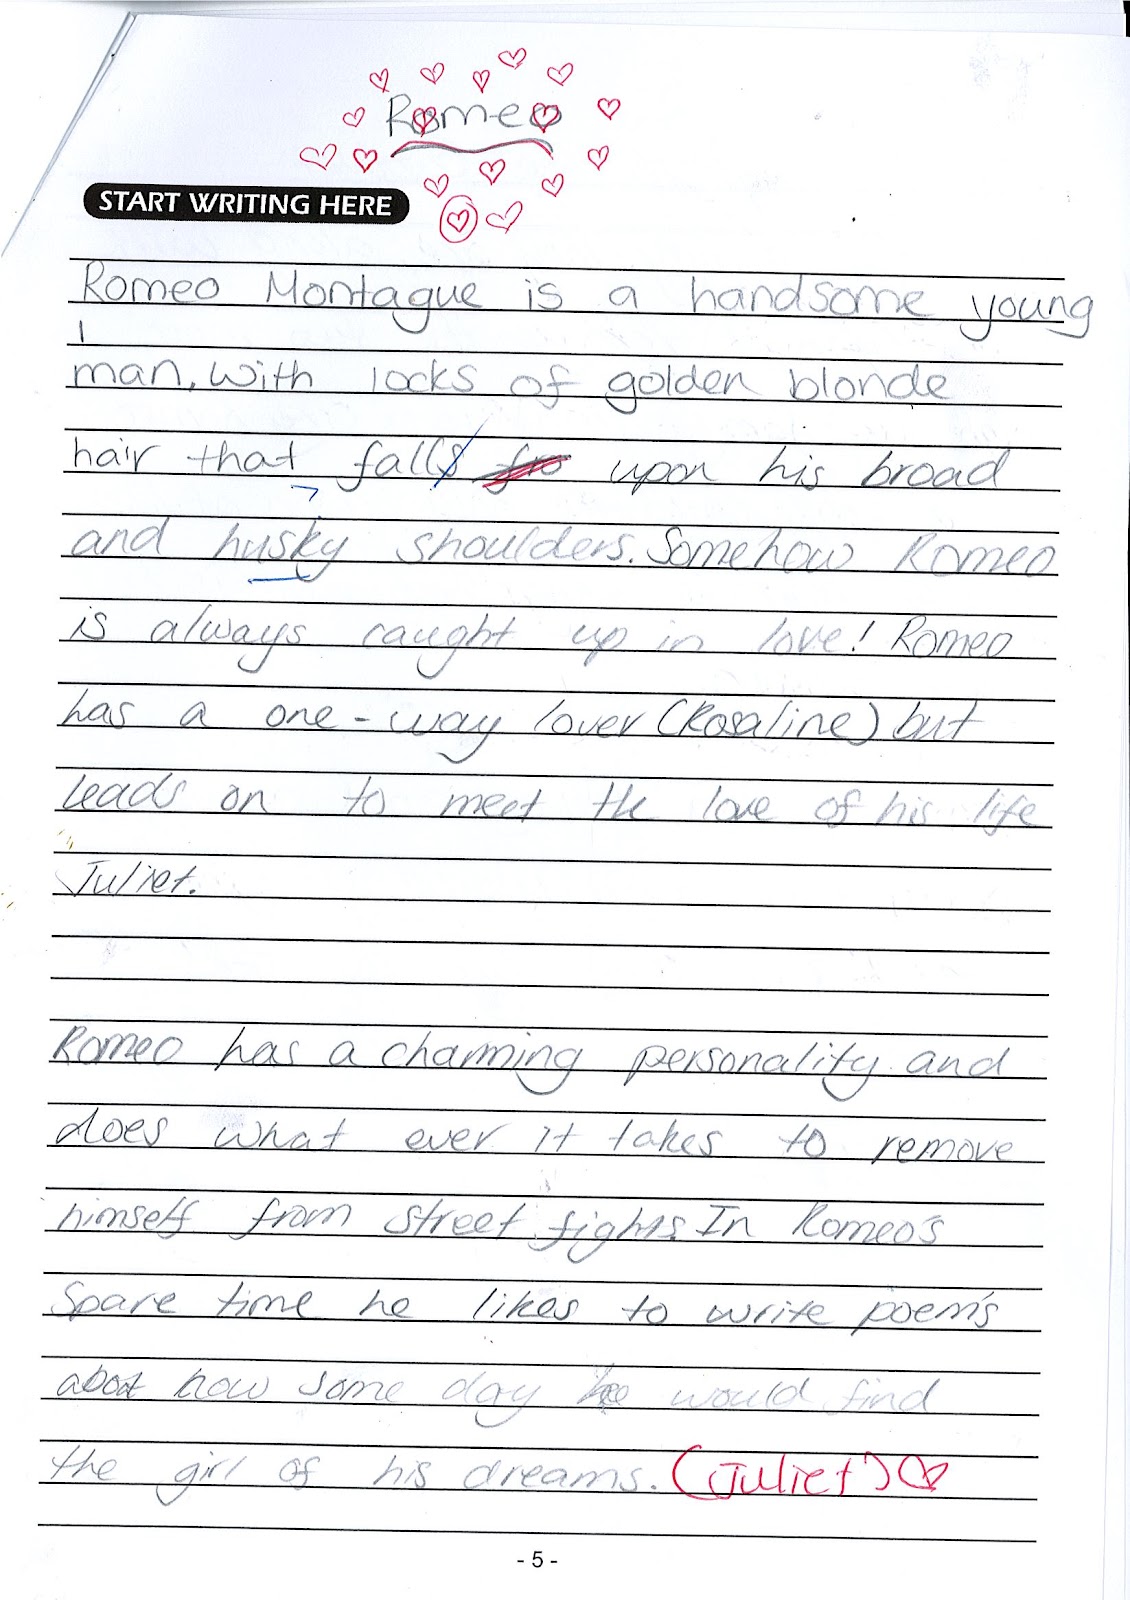 Romeo
START WRITING HERE
Romeo Montague is a handsome young
man, with locks of golden blonde
hair that falls upon his broad
and husky shoulders. Somehow Romeo
is always caught up in love! Romeo
has a one-way lover (Rosaline) but
leads on to meet the love of his life
Juliet.
Romeo has a charming personality and
does what ever it takes to remove
himself from street fights. In Romeo's
Spare time he likes to write poem's
about how some day he would find
the girl of his dreams. (Juliet)
- 5 -